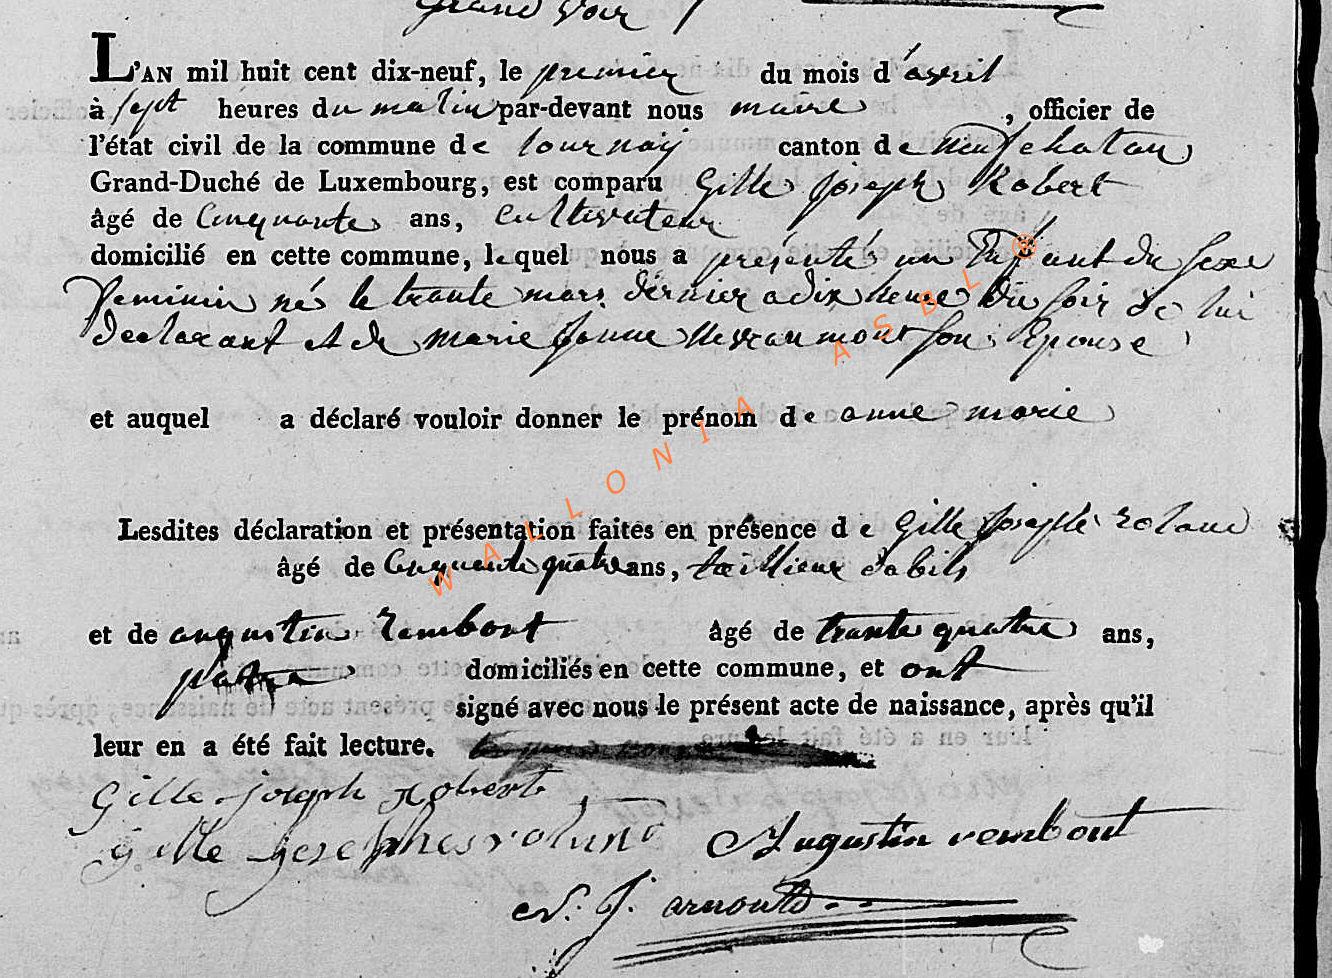 Grand Voir
L'AN mil huit cent dix-neuf, le premier du mois d'avril
à sept heures du matin par-devant nous maire , officier de
l'état civil de la commune de tournay canton de neufchatau
Grand-Duché de Luxembourg, est comparu Gille Joseph Robert
âgé de Cinquante ans, Cultivateur
domicilié en cette commune, lequel nous a presenté un Enfant du sexe
feminin né le trante mars dernier a dix heure du soir de lui
declarant et de marie jeanne Nevraumont son Epouse
et auquel a déclaré vouloir donner le prénom de anne marie
Lesdites déclaration et présentation faites en présence de Gille Joseph roland
âgé de Cinquante quatre ans, taillieur dabits
et de augustin rembout âgé de trante quatre ans,
patre domiciliés en cette commune, et ont
signé avec nous le présent acte de naissance, après qu'il
leur en a été fait lecture.
Gille joseph Robert
gille josephe roland Augustin rembout
J. arnould
WALLONIA ASBL